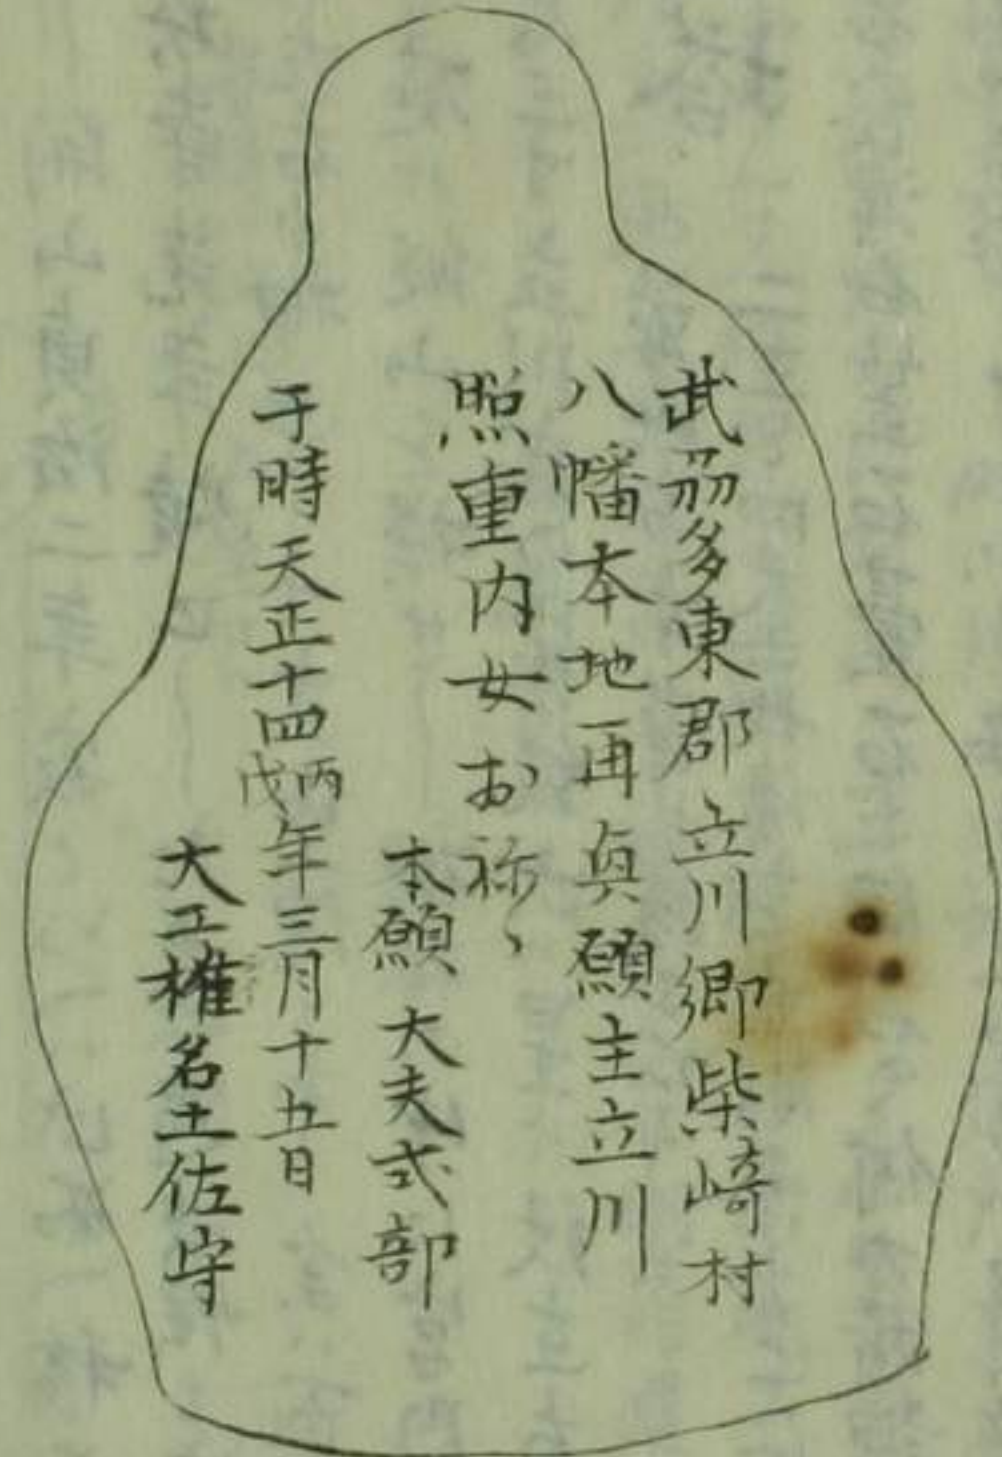 武刕多東郡立川郷柴崎村
八幡本地再興願主立川
照重内女お祢〻
本願 大夫式部
于時天正十四丙戌年三月十五日
大工椎名土佐守